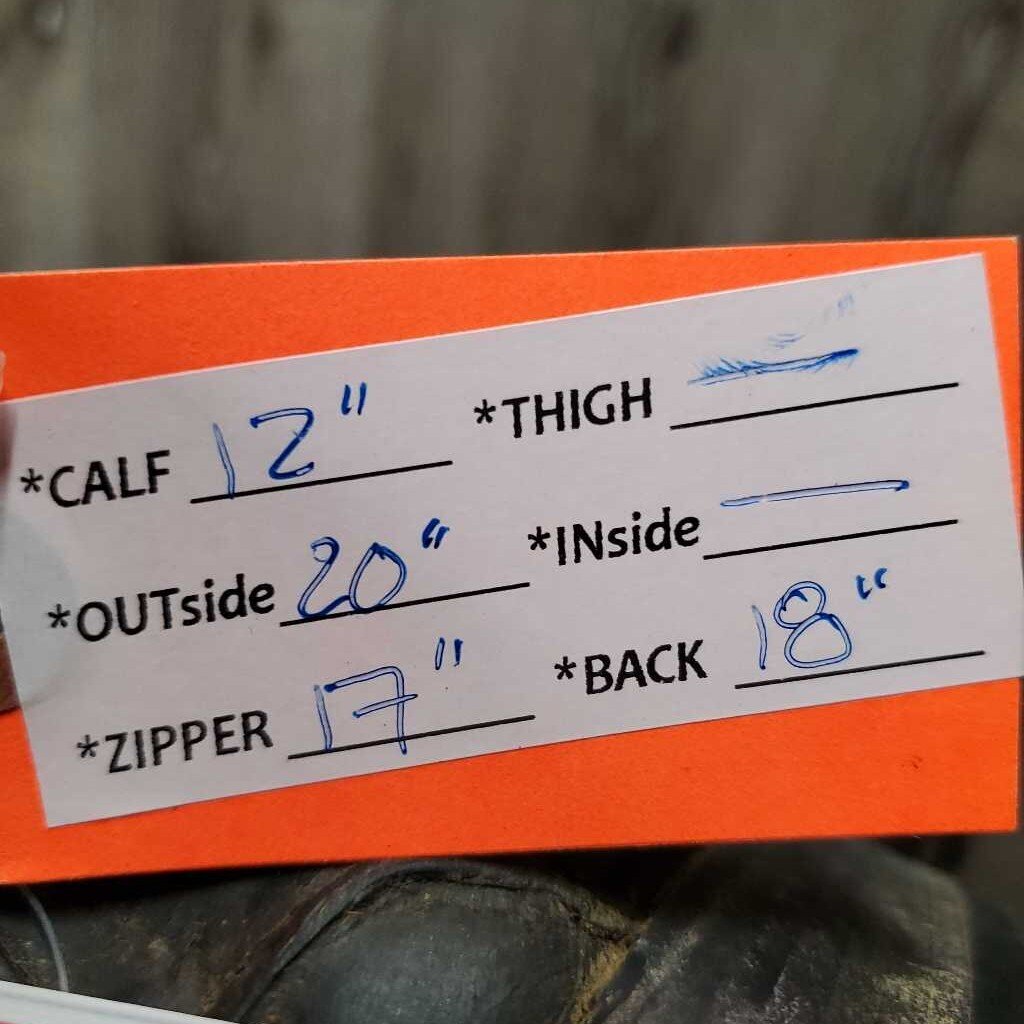 *CALF 12" *THIGH —
*OUTside 20" *INside —
*ZIPPER 17" *BACK 18"